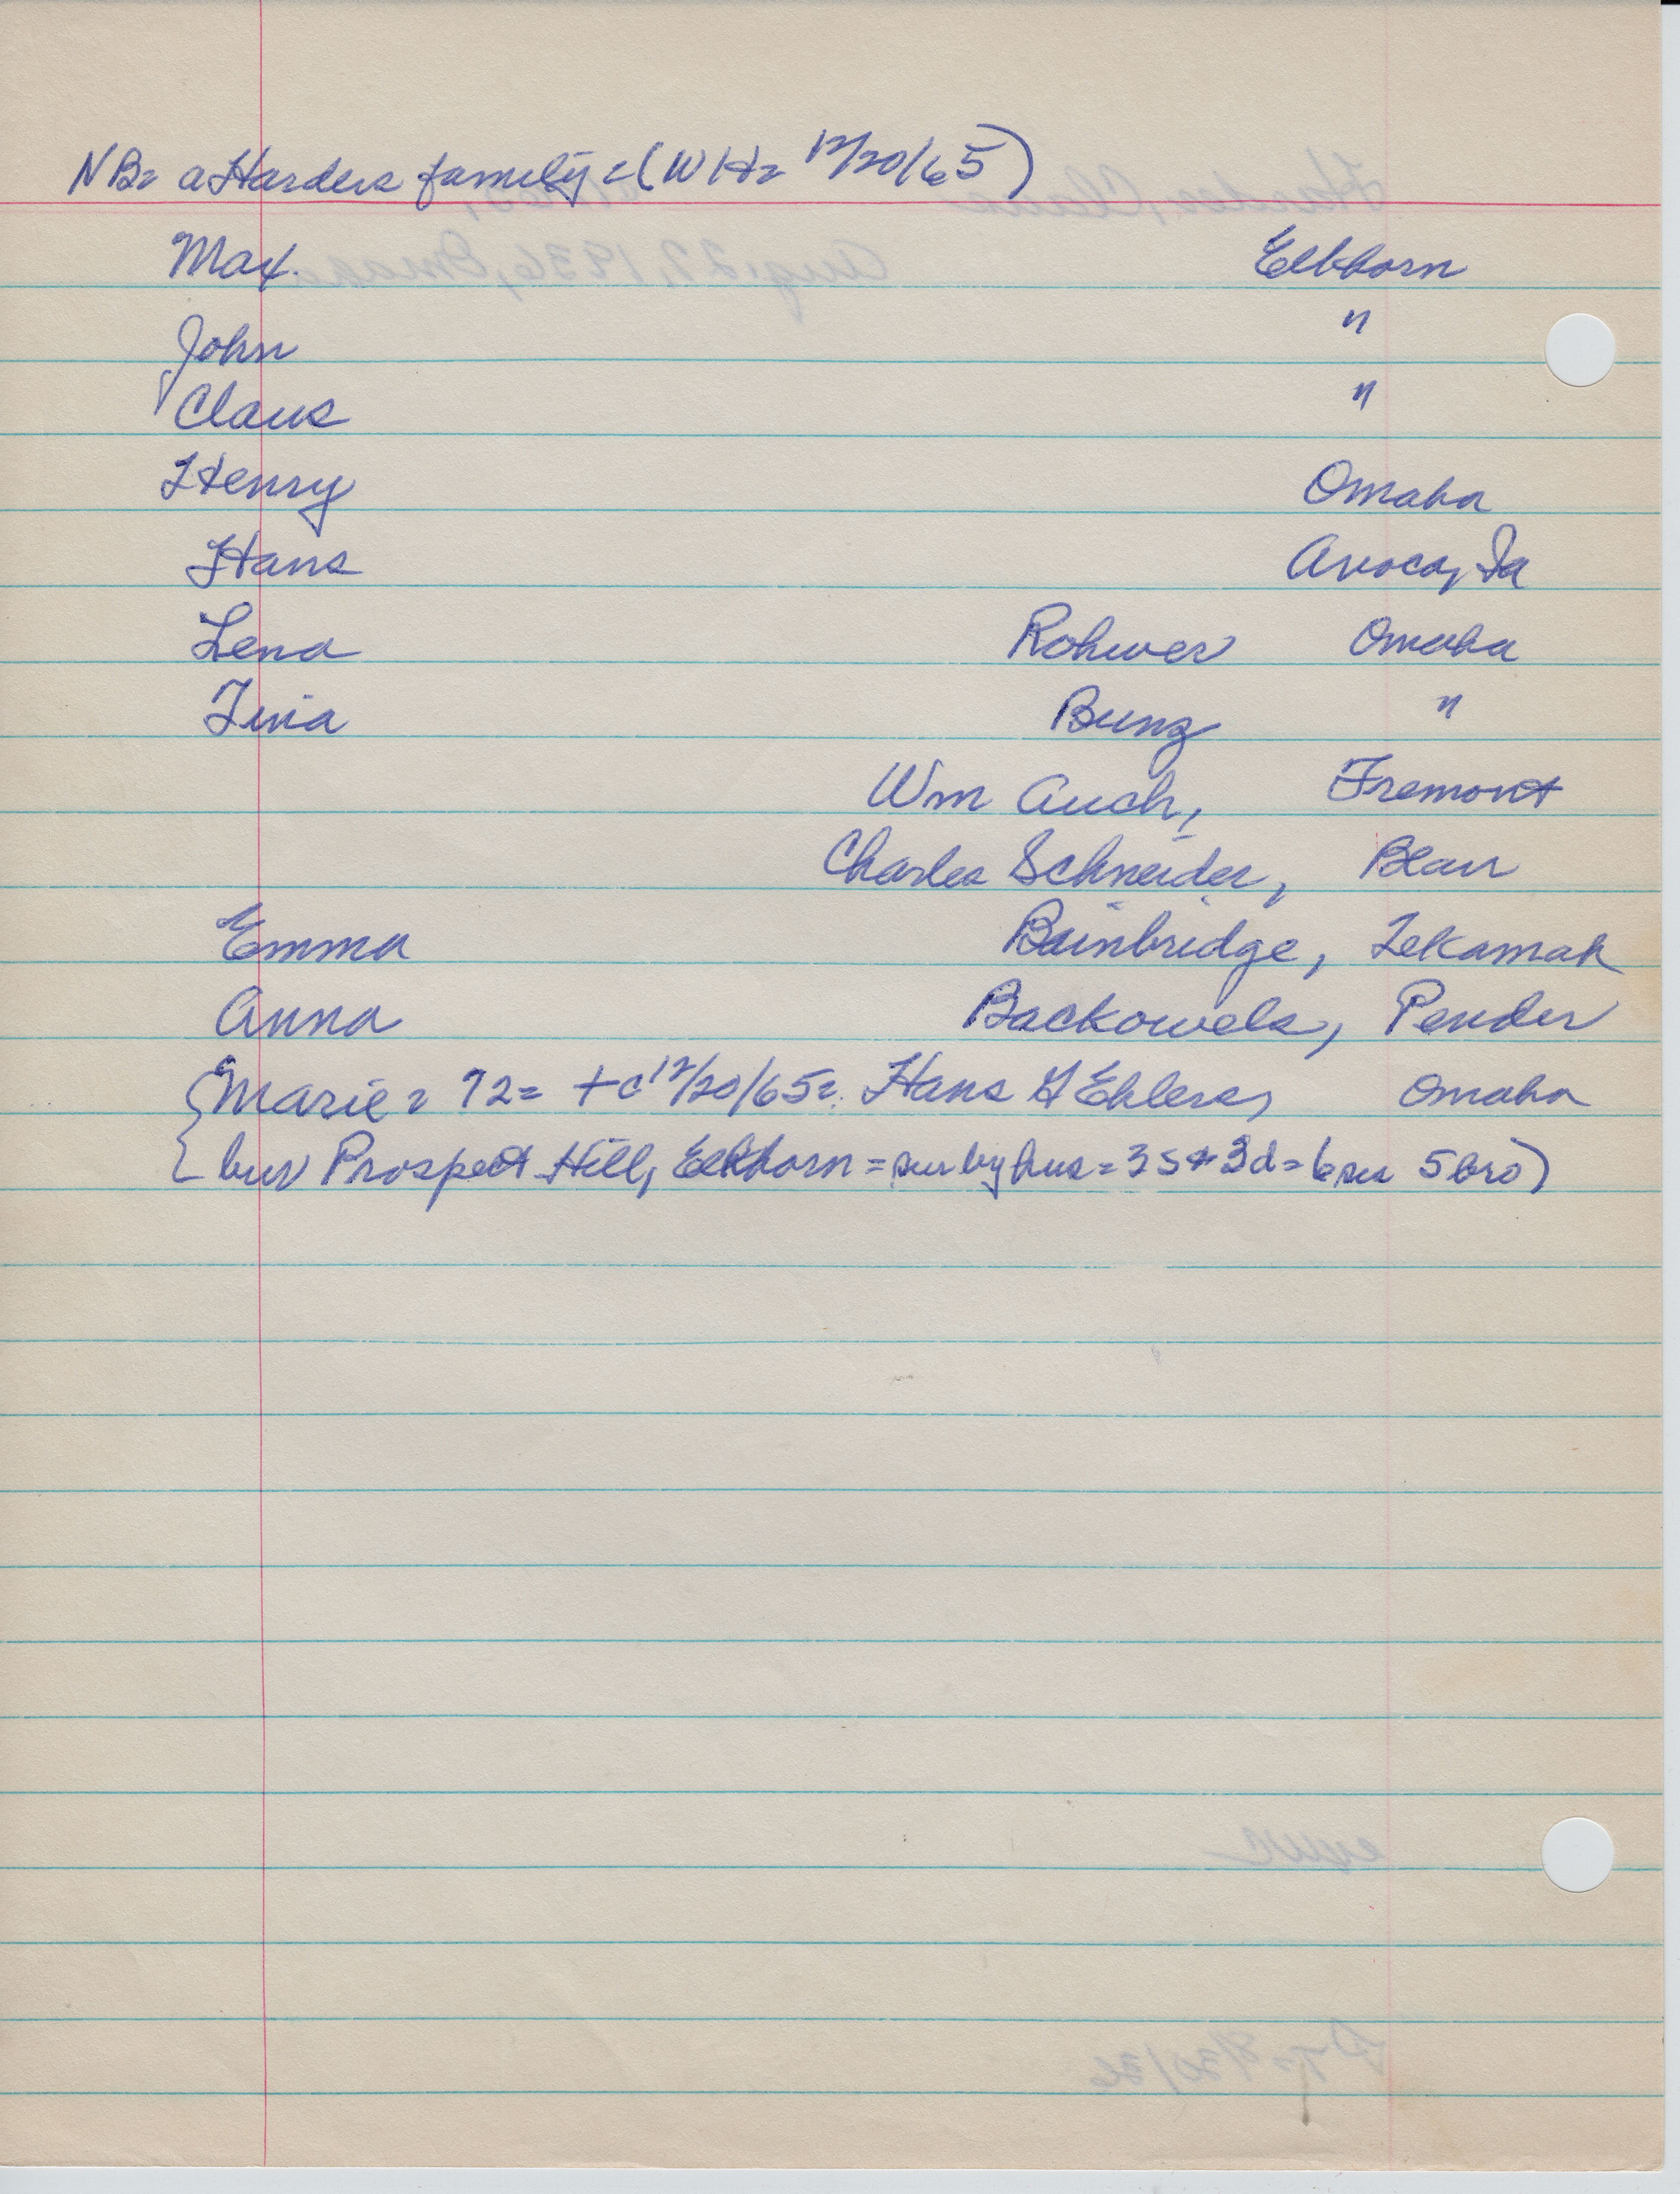 NB= a Harders family = (WH= 12/20/65)
Max. Elkhorn
John "
Claus "
Henry Omaha
Hans Avoca, Ia
Lena Rohwer Omaha
Tina Bunz "
Wm Auch, Fremont
Charles Schneider, Blair
Emma Bainbridge, Tekamah
Anna Backowels, Pender
{Marie = 72 = +c 12/20/65 = Hans H Ehlers, Omaha
{bur Prospect Hill, Elkhorn = sur by hus = 3s + 3d = 6 sis 5 bro)